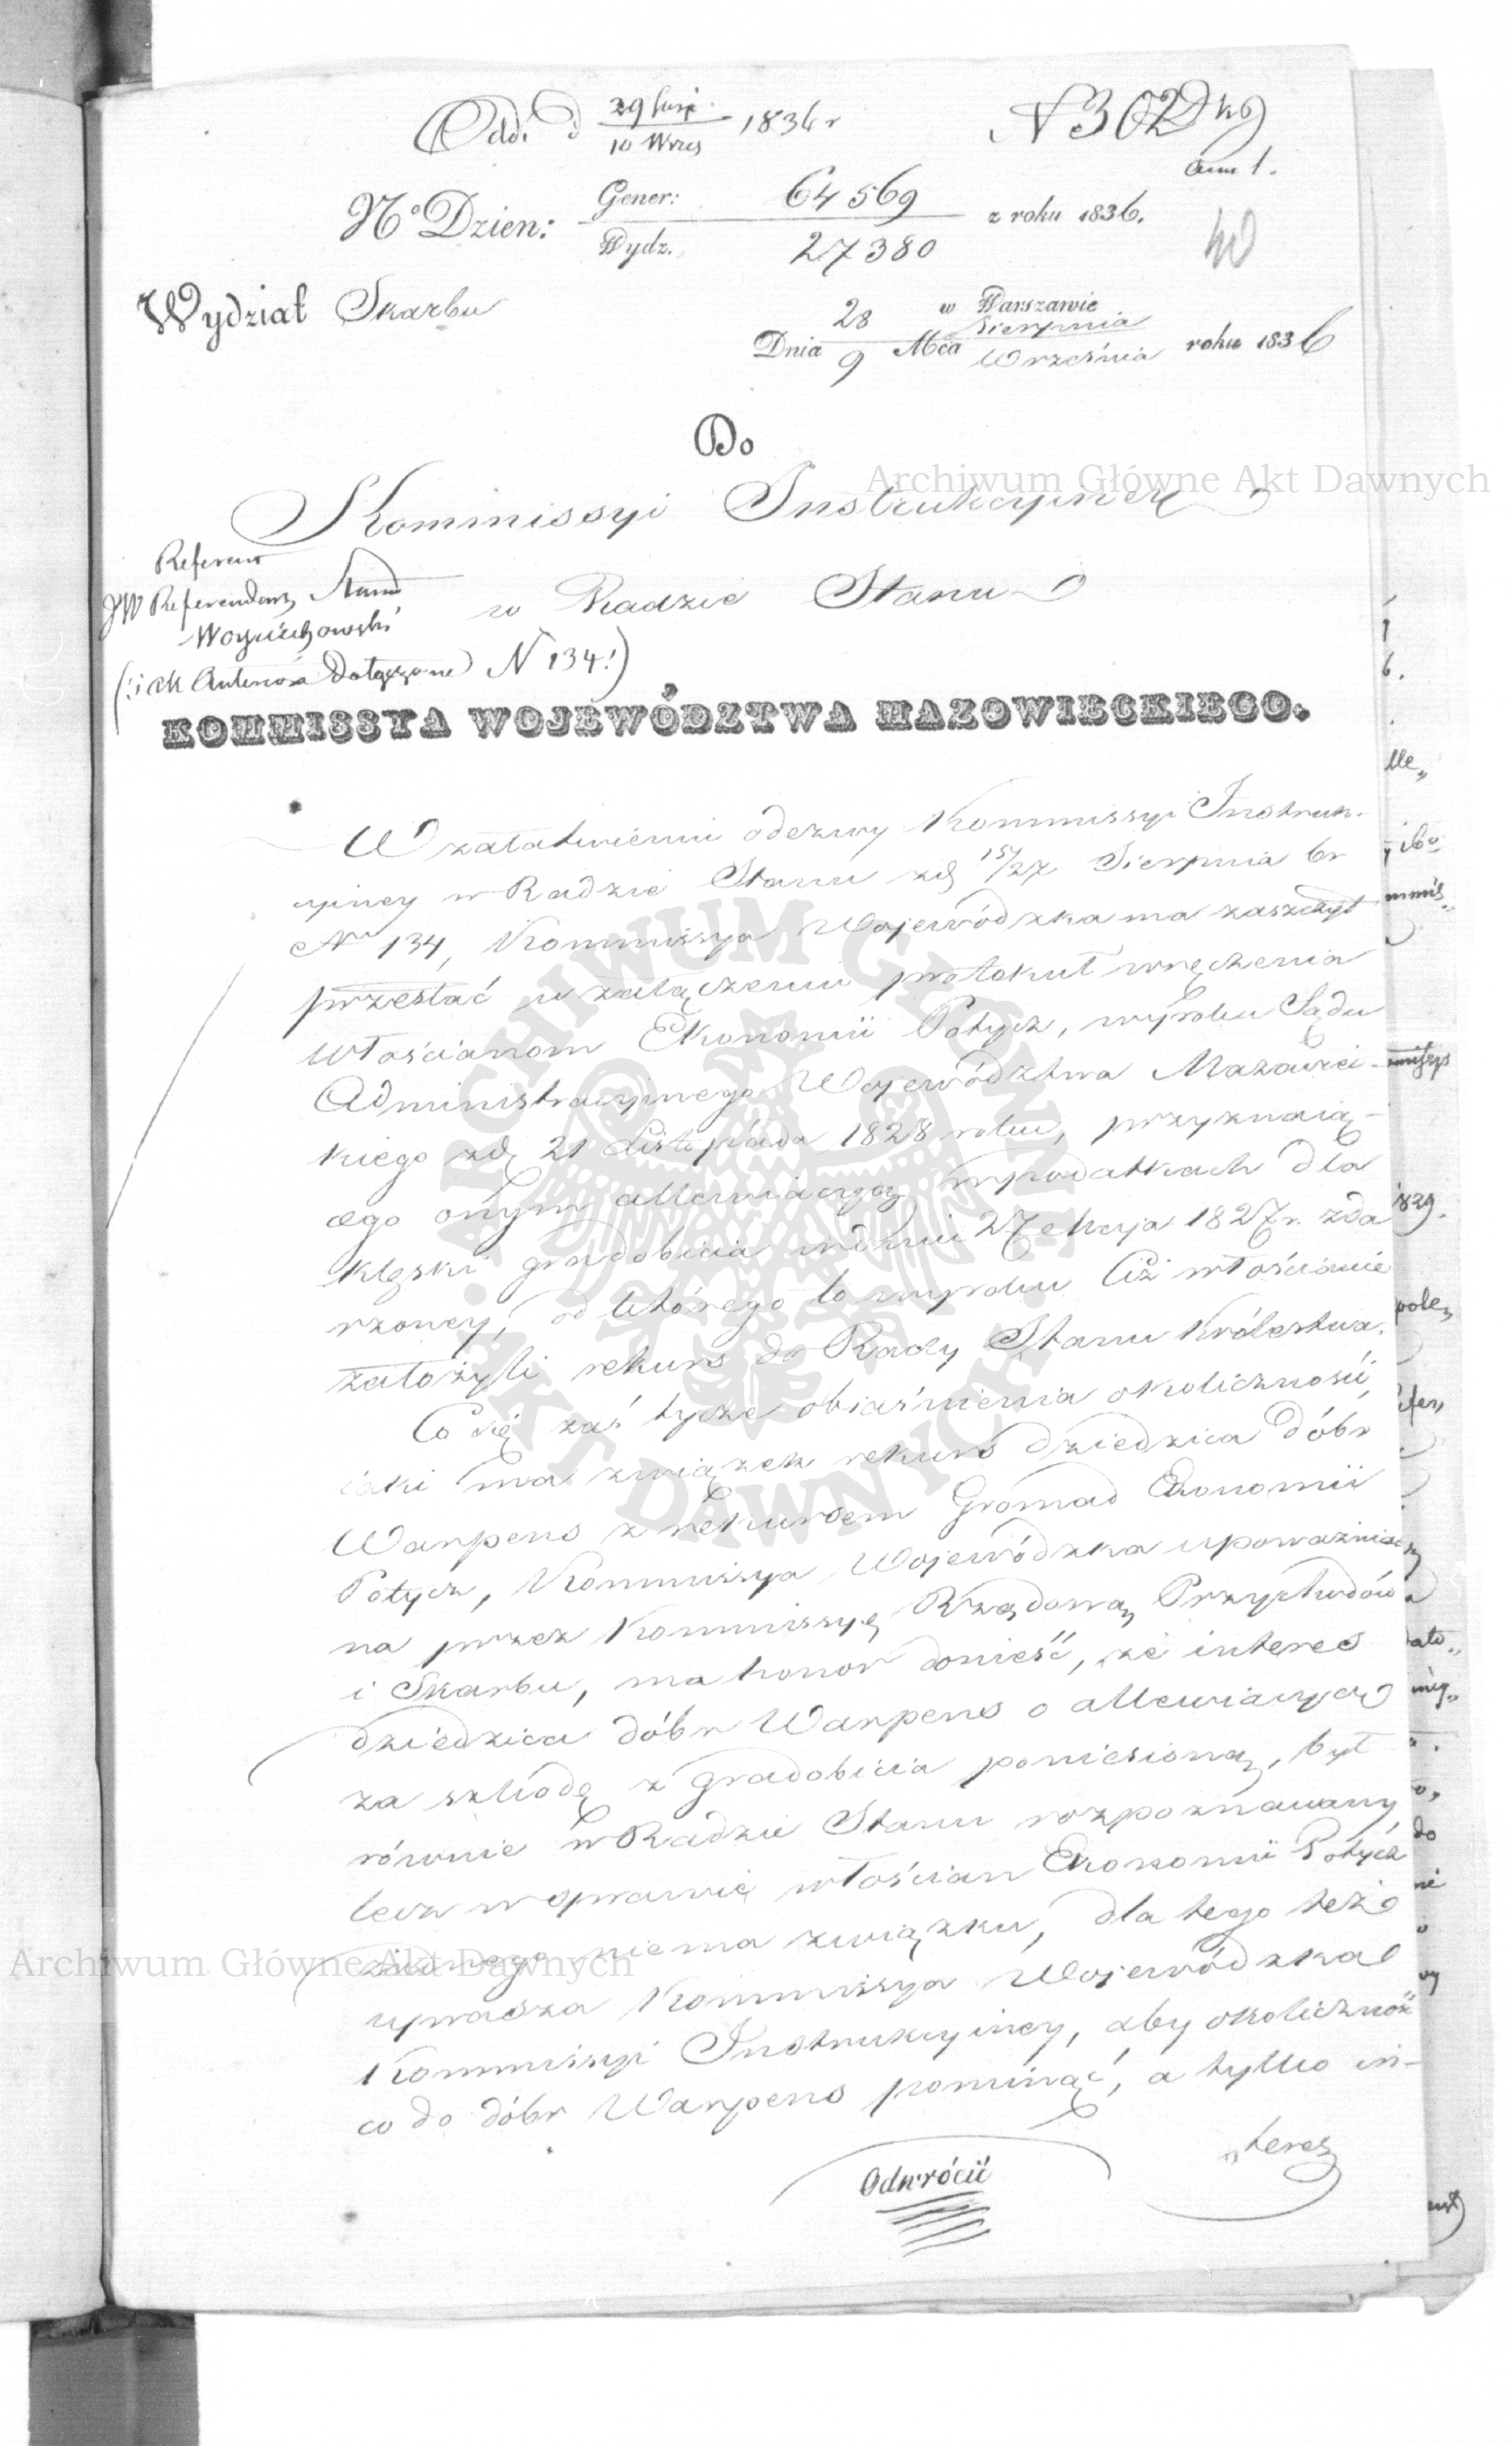 Odd. d 29 Sierp. / 10 Wrześ 1836 r
N 302
ann 1.
No Dzien: Gener: 64569 z roku 1836.
Wydz. 27380
40
Wydział Skarbu
w Warszawie
Dnia 28 / 9 Mca Sierpnia / Września roku 1836
Do
Archiwum Główne Akt Dawnych
Kommissyi Instrukcyiney
Referent
JW Referendarz Stanu
Woyciechowski
w Radzie Stanu
(: i ck Anteriora dołączone N 134 :)
KOMMISSYA WOJEWÓDZTWA MAZOWIECKIEGO.
W załatwieniu odezwy Kommissyi Instruk-
cyiney w Radzie Stanu z d. 15/27 Sierpnia br
No 134, Kommissya Wojewódzka ma zaszczyt
przesłać w załączeniu protokuł wręczenia
włościanom Ekonomii Potycz, wyroku Sądu
Administracyinego Województwa Mazowiec-
kiego z d. 21 Listopada 1828 roku, przyznaią-
cego onym allewiacyą w podatkach dla
klęski gradobicia w dniu 27 Maja 1827 r. zda
rzoney, od którego to wyroku Ciż włościanie
założyli rekurs do Rady Stanu Królestwa.
Co się zaś tycze obiaśnienia okoliczności
iaki ma związek rekurs dziedzica dóbr
Warpens z rekursem Gromad Ekonomii
Potycz, Kommissya Wojewódzka upoważnio
na przez Kommissyę Rządową Przychodów
i Skarbu, ma honor donieść, że interes
dziedzica dóbr Warpens o allewiacyą
za szkodę z gradobicia poniesioną, był
równie w Radzie Stanu rozpoznawany
lecz w sprawie włościan Ekonomii Potycz
żadnego niema związku, dla tego też
Archiwum Główne Akt Dawnych
uprasza Kommissya Wojewódzka
Kommissyi Instrukcyiney, aby okoliczność
co do dóbr Warpens pominąć, a tylko in-
teres
Odwrócić
ARCHIWUM GŁÓWNE
AKT DAWNYCH